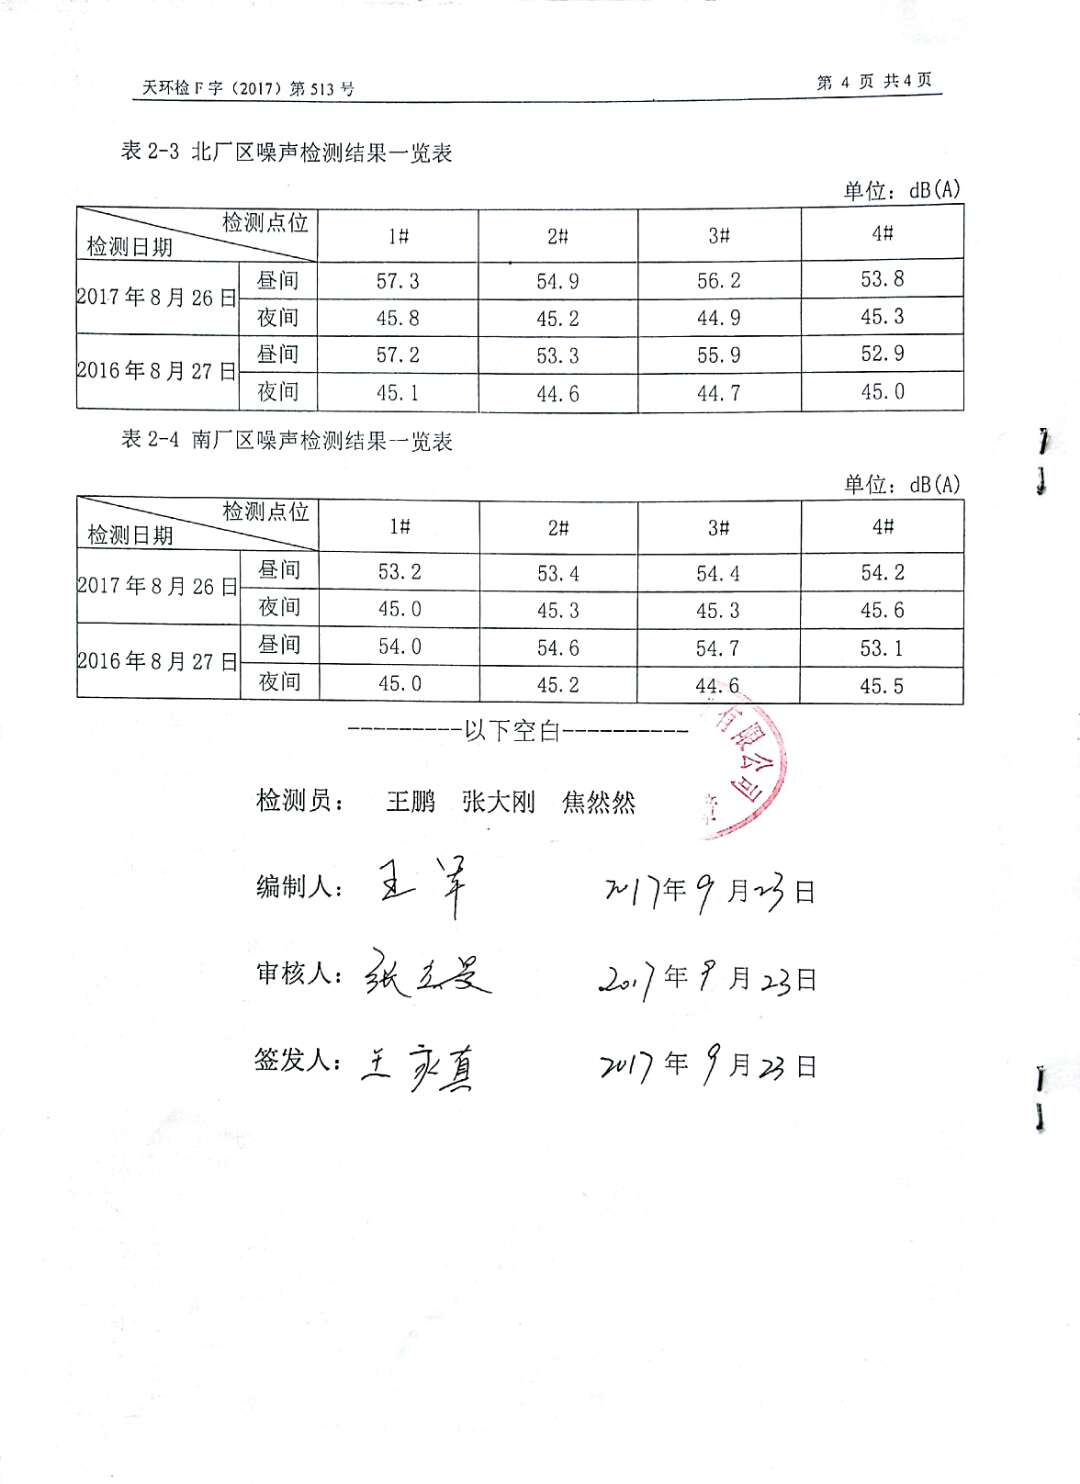 天环检F字（2017）第513号
第 4 页 共4页
表 2-3 北厂区噪声检测结果一览表
单位：dB(A)
检测点位 1# 2# 3# 4#
检测日期
2017年8月26日 昼间 57.3 54.9 56.2 53.8
夜间 45.8 45.2 44.9 45.3
2016年8月27日 昼间 57.2 53.3 55.9 52.9
夜间 45.1 44.6 44.7 45.0
表 2-4 南厂区噪声检测结果一览表
单位：dB(A)
检测点位 1# 2# 3# 4#
检测日期
2017年8月26日 昼间 53.2 53.4 54.4 54.2
夜间 45.0 45.3 45.3 45.6
2016年8月27日 昼间 54.0 54.6 54.7 53.1
夜间 45.0 45.2 44.6 45.5
---------以下空白----------
有限公司
章
检测员： 王鹏 张大刚 焦然然
编制人：王军 2017年9月23日
审核人：张 2017年9月23日
签发人：王 真 2017年9月23日